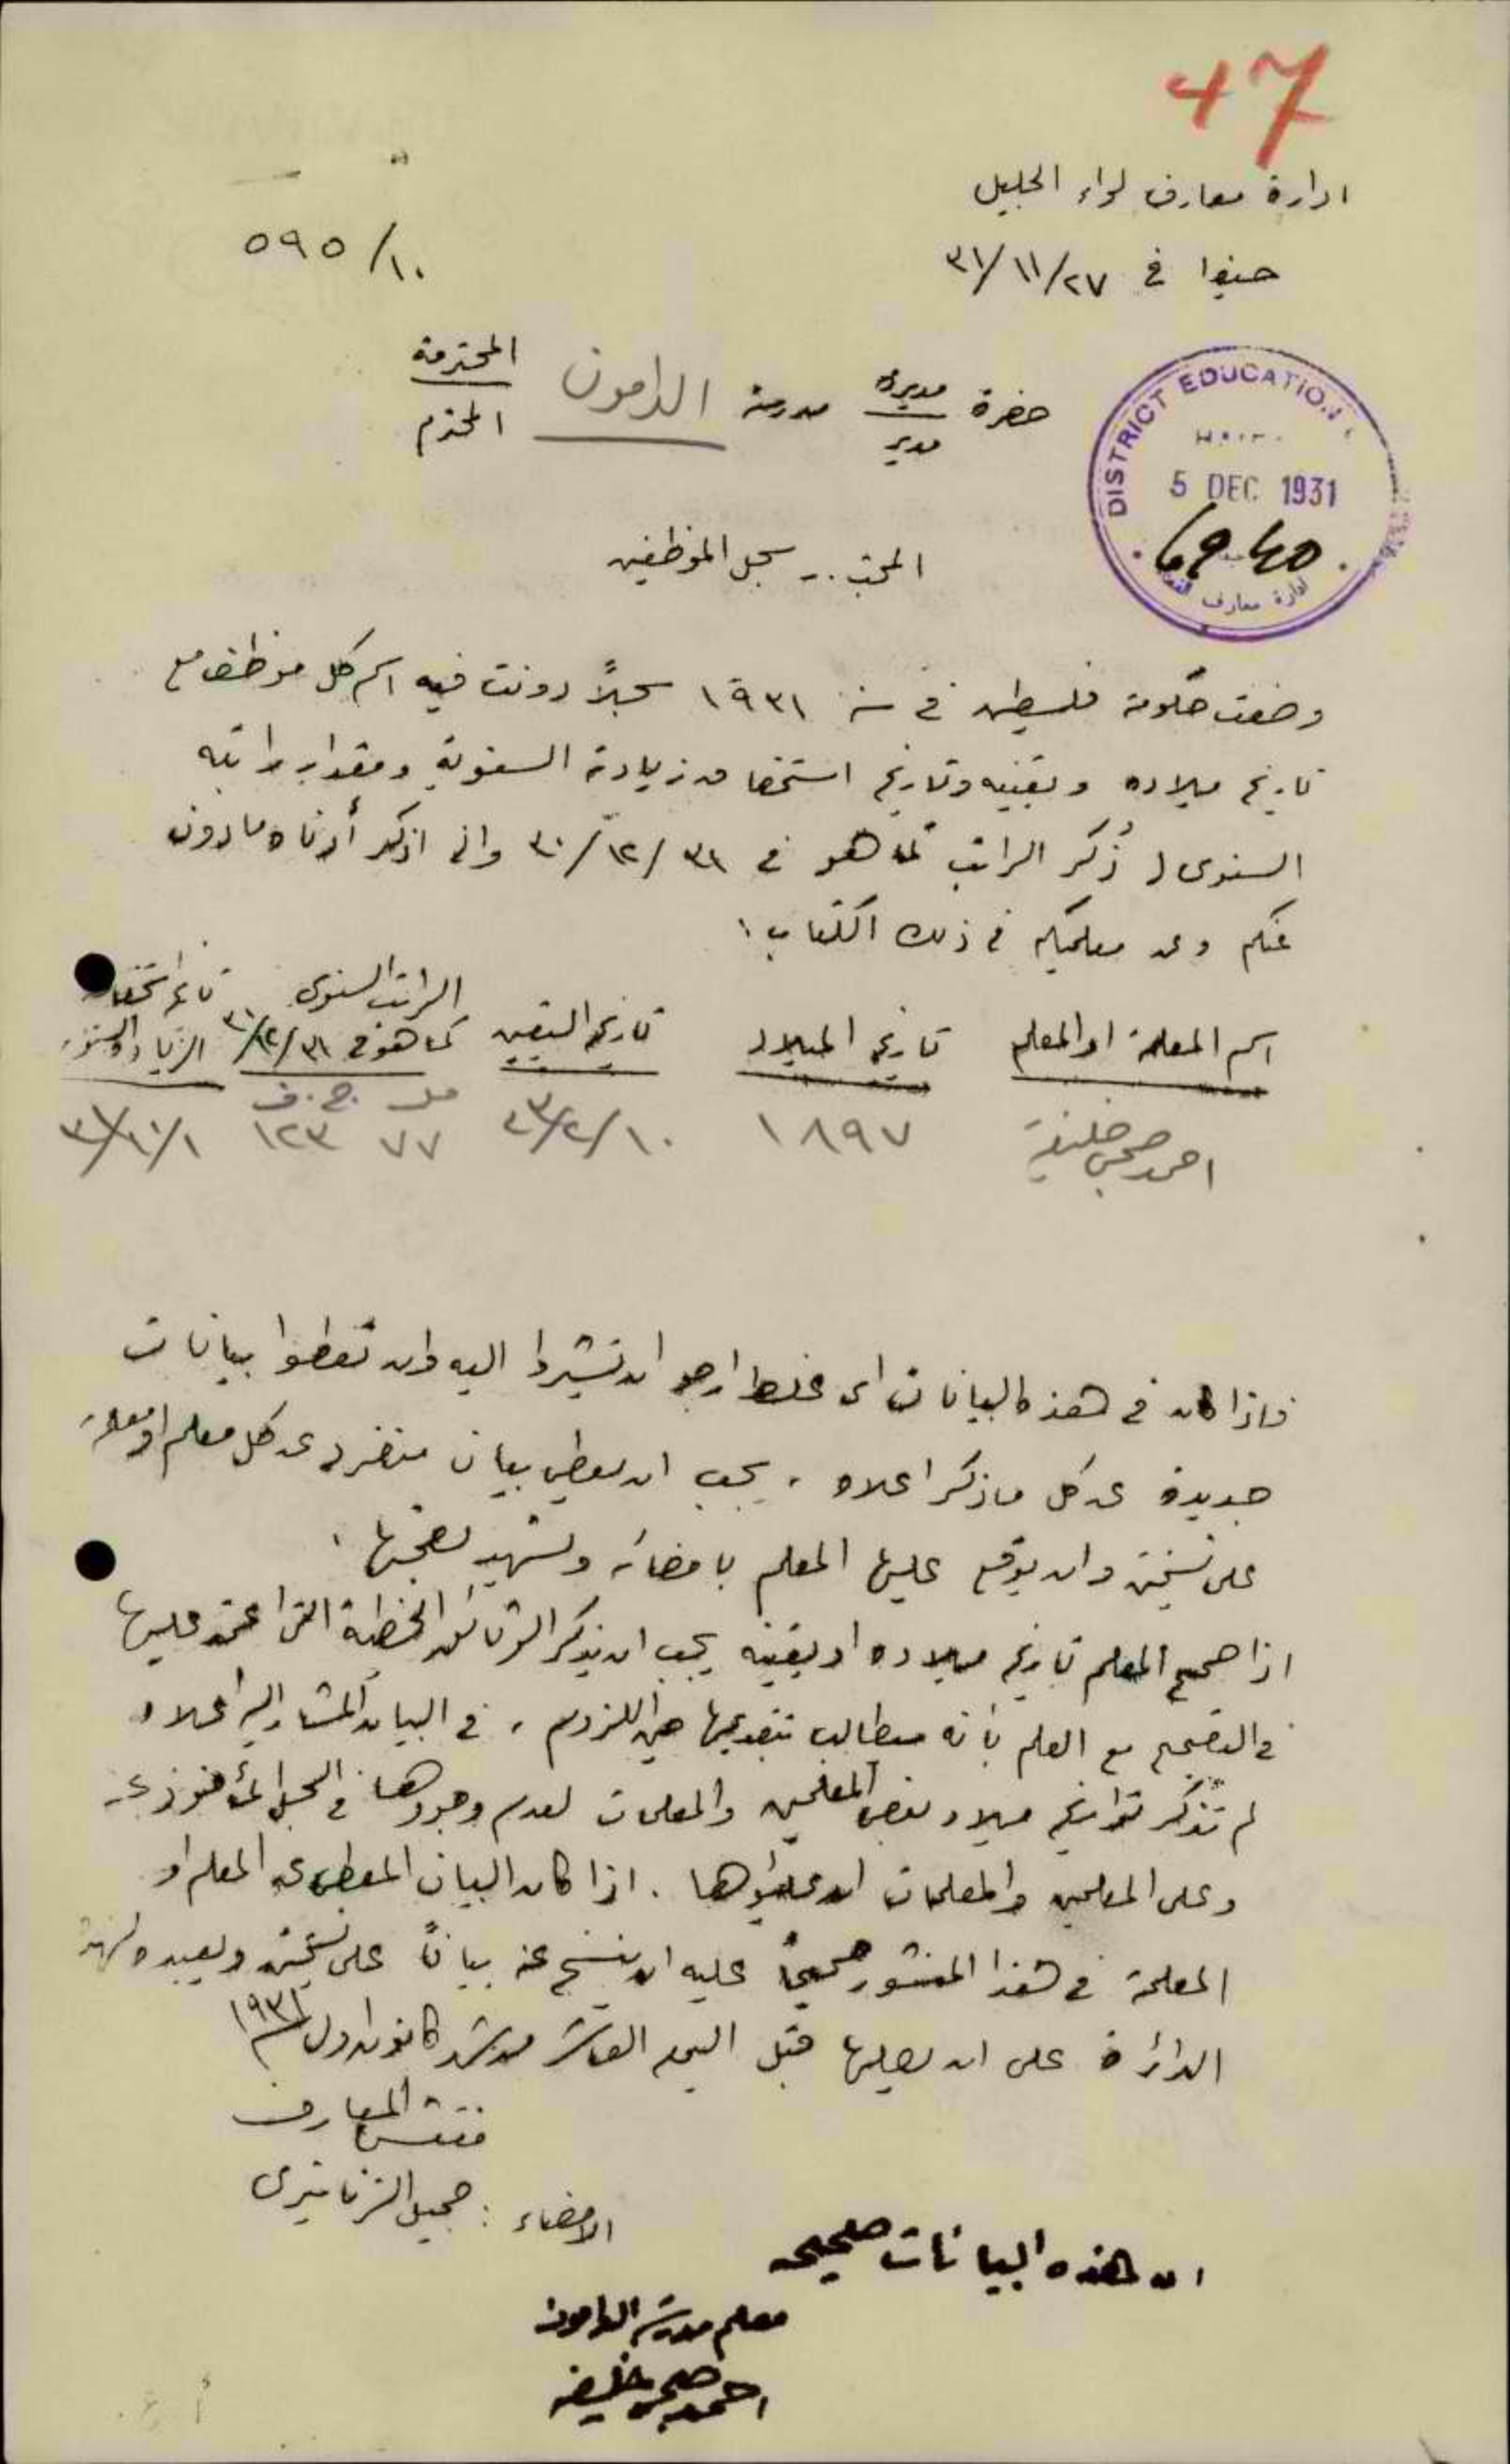 47
ادارة معارف لواء الجليل
حيفا في ٣١/١١/٢٧
٥٩٥/١٠
حضرة مديرة مدرسة الدامون المحترمة
مدير المحترم
DISTRICT EDUCATION
5 DEC 1931
6940
ادارة معارف
سجل الموظفين
وضعت حكومة فلسطين في سنة ١٩٣١ سجلاً دونت فيه اسم كل موظف مع
تاريخ ميلاده وتعيينه وتاريخ استحقاق زيادته السنوية ومقدار راتبه
السنوي ذُكر الراتب كما هو في ٣٠/١٢/٣١ واني اذكر أدناه ما دون
عنكم وعن معلميكم في ذلك الكتاب:
اسم المعلمة او المعلم تاريخ الميلاد تاريخ التعيين الراتب السنوي كما هو في ٣٠/١٢/٣١ تاريخ استحقاق الزيادة السنوية
مل ج.ف
احمد صبحي خليفة ١٨٩٧ ٢٣/٢/١٠ ٧٧ ١٢٣ ٣١/١٠/١
فاذا كان في هذه البيانات اي غلط ارجو ان تشيروا اليه وان تعطوا بيانات
جديدة عن كل ما ذكر اعلاه، يجب ان يعطى بيان منفرد عن كل معلم او معلمة
على نسختين وان يوقع عليها المعلم بامضائه وتشهد بصحتها.
اذا صحح المعلم تاريخ ميلاده او تعيينه يجب ان يذكر الوثائق الخطية التي اعتمد عليها
في التصحيح مع العلم بأنه سيطالب بتقديمها حين اللزوم، في البيان المشار اليه اعلاه
لم تُذكر تواريخ ميلاد بعض المعلمين والمعلمات لعدم وجودها في السجل المأخوذ عنه
وعلى المعلمين والمعلمات ان يملؤوها. اذا كان البيان المعطى عن المعلم او
المعلمة في هذا المنشور صحيحاً عليه ان ينسخ عنه بياناً على نسختين ويعيده لهذه
الدائرة على ان يصلها قبل اليوم العاشر من شهر كانون اول ١٩٣١
مفتش المعارف
الامضاء: جميل الزنانيري
ان هذه البيانات صحيحه
معلم مدرسة الدامون
احمد صبحي خليفه